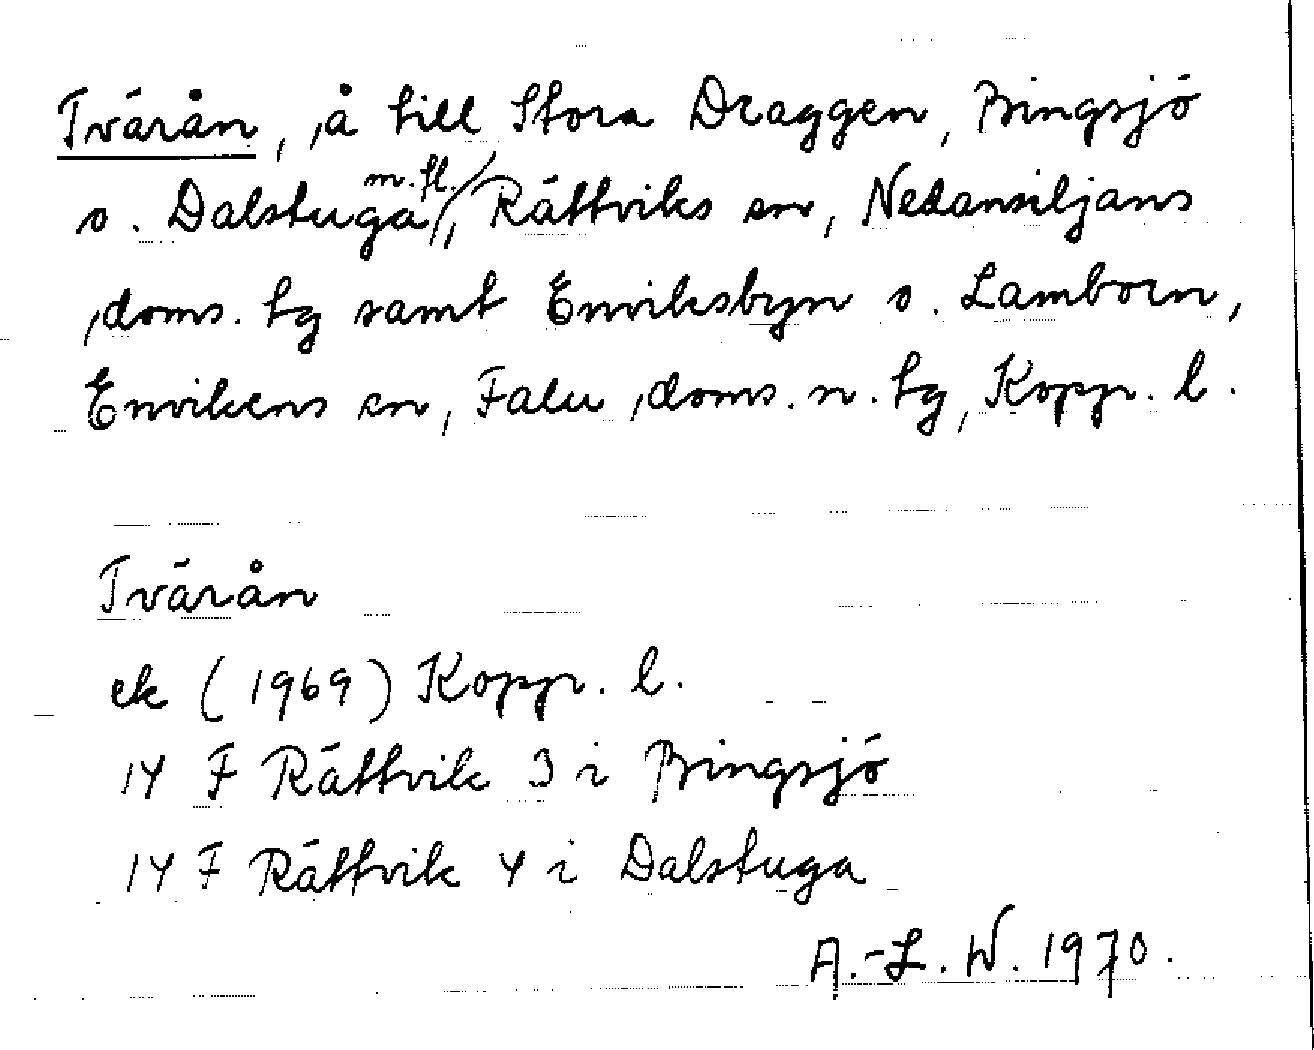 Tvärån, å till Stora Draggen, Bingsjö
o. Dalstuga m.fl., Rättviks sn, Nedansiljans
doms. tg samt Enviksbyn o. Lamborn,
Envikens sn, Falu doms. n. tg, Kopp. l.
Tvärån
ek (1969) Kopp. l.
14 F Rättvik 3 i Bingsjö
14 F Rättvik 4 i Dalstuga
A.-L. W. 1970.